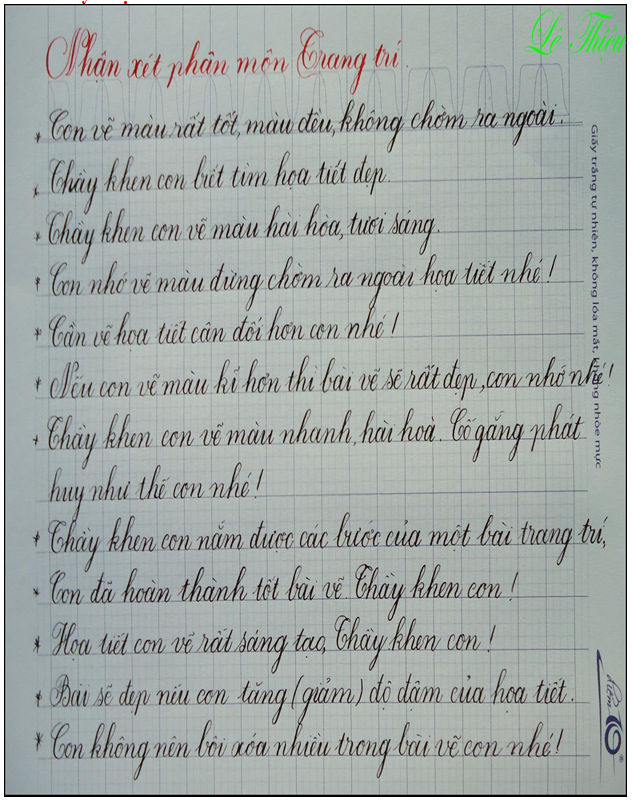 Lê Thiệu
Nhận xét phân môn Trang trí.
* Con vẽ màu rất tốt, màu đều, không chờm ra ngoài.
* Thầy khen con biết tìm họa tiết đẹp.
* Thầy khen con vẽ màu hài hòa, tươi sáng.
* Con nhớ vẽ màu đừng chờm ra ngoài họa tiết nhé!
* Cần vẽ họa tiết cân đối hơn con nhé!
* Nếu con vẽ màu kĩ hơn thì bài vẽ sẽ rất đẹp, con nhớ nhé!
* Thầy khen con vẽ màu nhanh, hài hoà. Cố gắng phát
huy như thế con nhé!
* Thầy khen con nắm được các bước của một bài trang trí,
* Con đã hoàn thành tốt bài vẽ. Thầy khen con!
* Họa tiết con vẽ rất sáng tạo, Thầy khen con!
* Bài sẽ đẹp nếu con tăng (giảm) độ đậm của họa tiết.
* Con không nên bôi xóa nhiều trong bài vẽ con nhé!
Giấy trắng tự nhiên, không lóa mắt, không nhòe mực
điểm 10